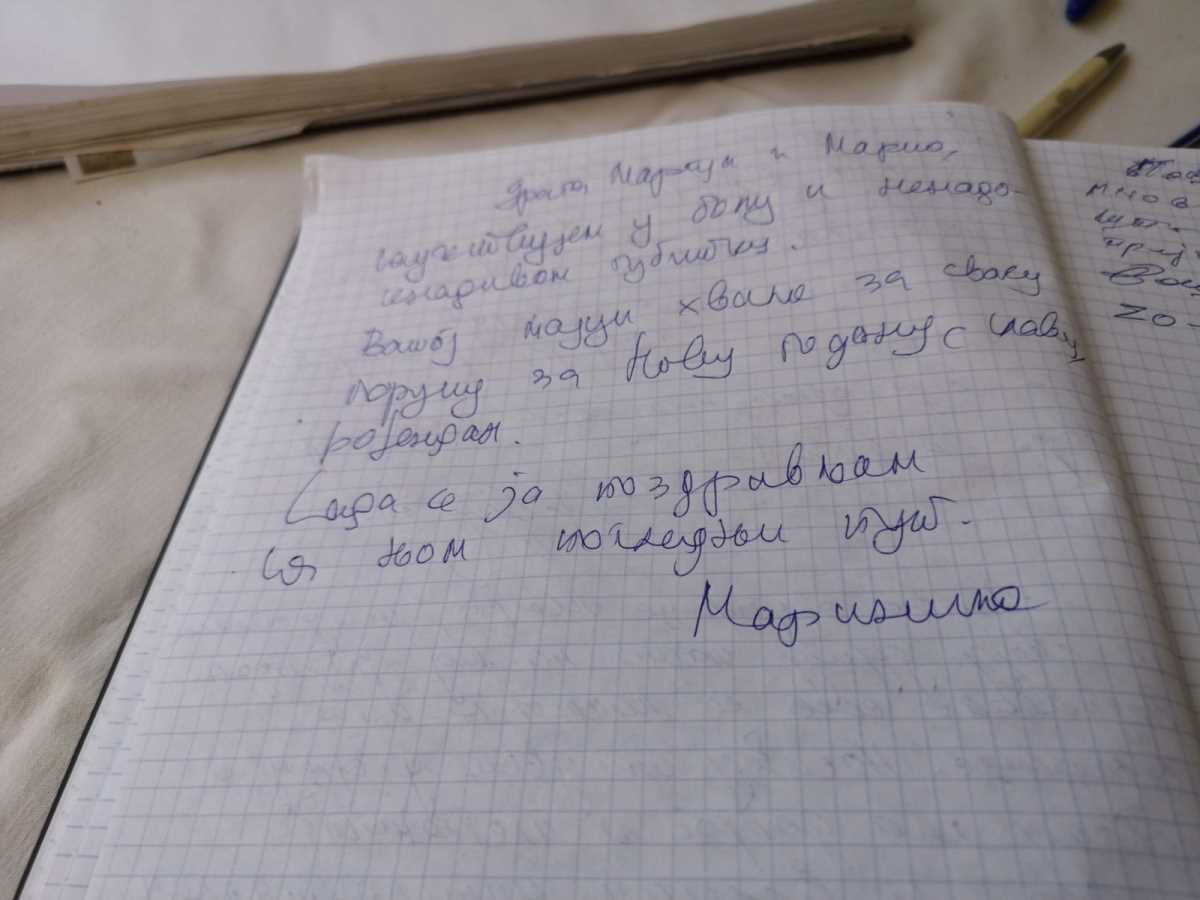 Драга Марија и Марио,
саучествујем у болу и ненадо-
кнадивом губитку.
Вашој мајци хвала за сваку
поруку за Нову годину, славу,
рођендан.
Сада се ја поздрављам
са њом последњи пут.